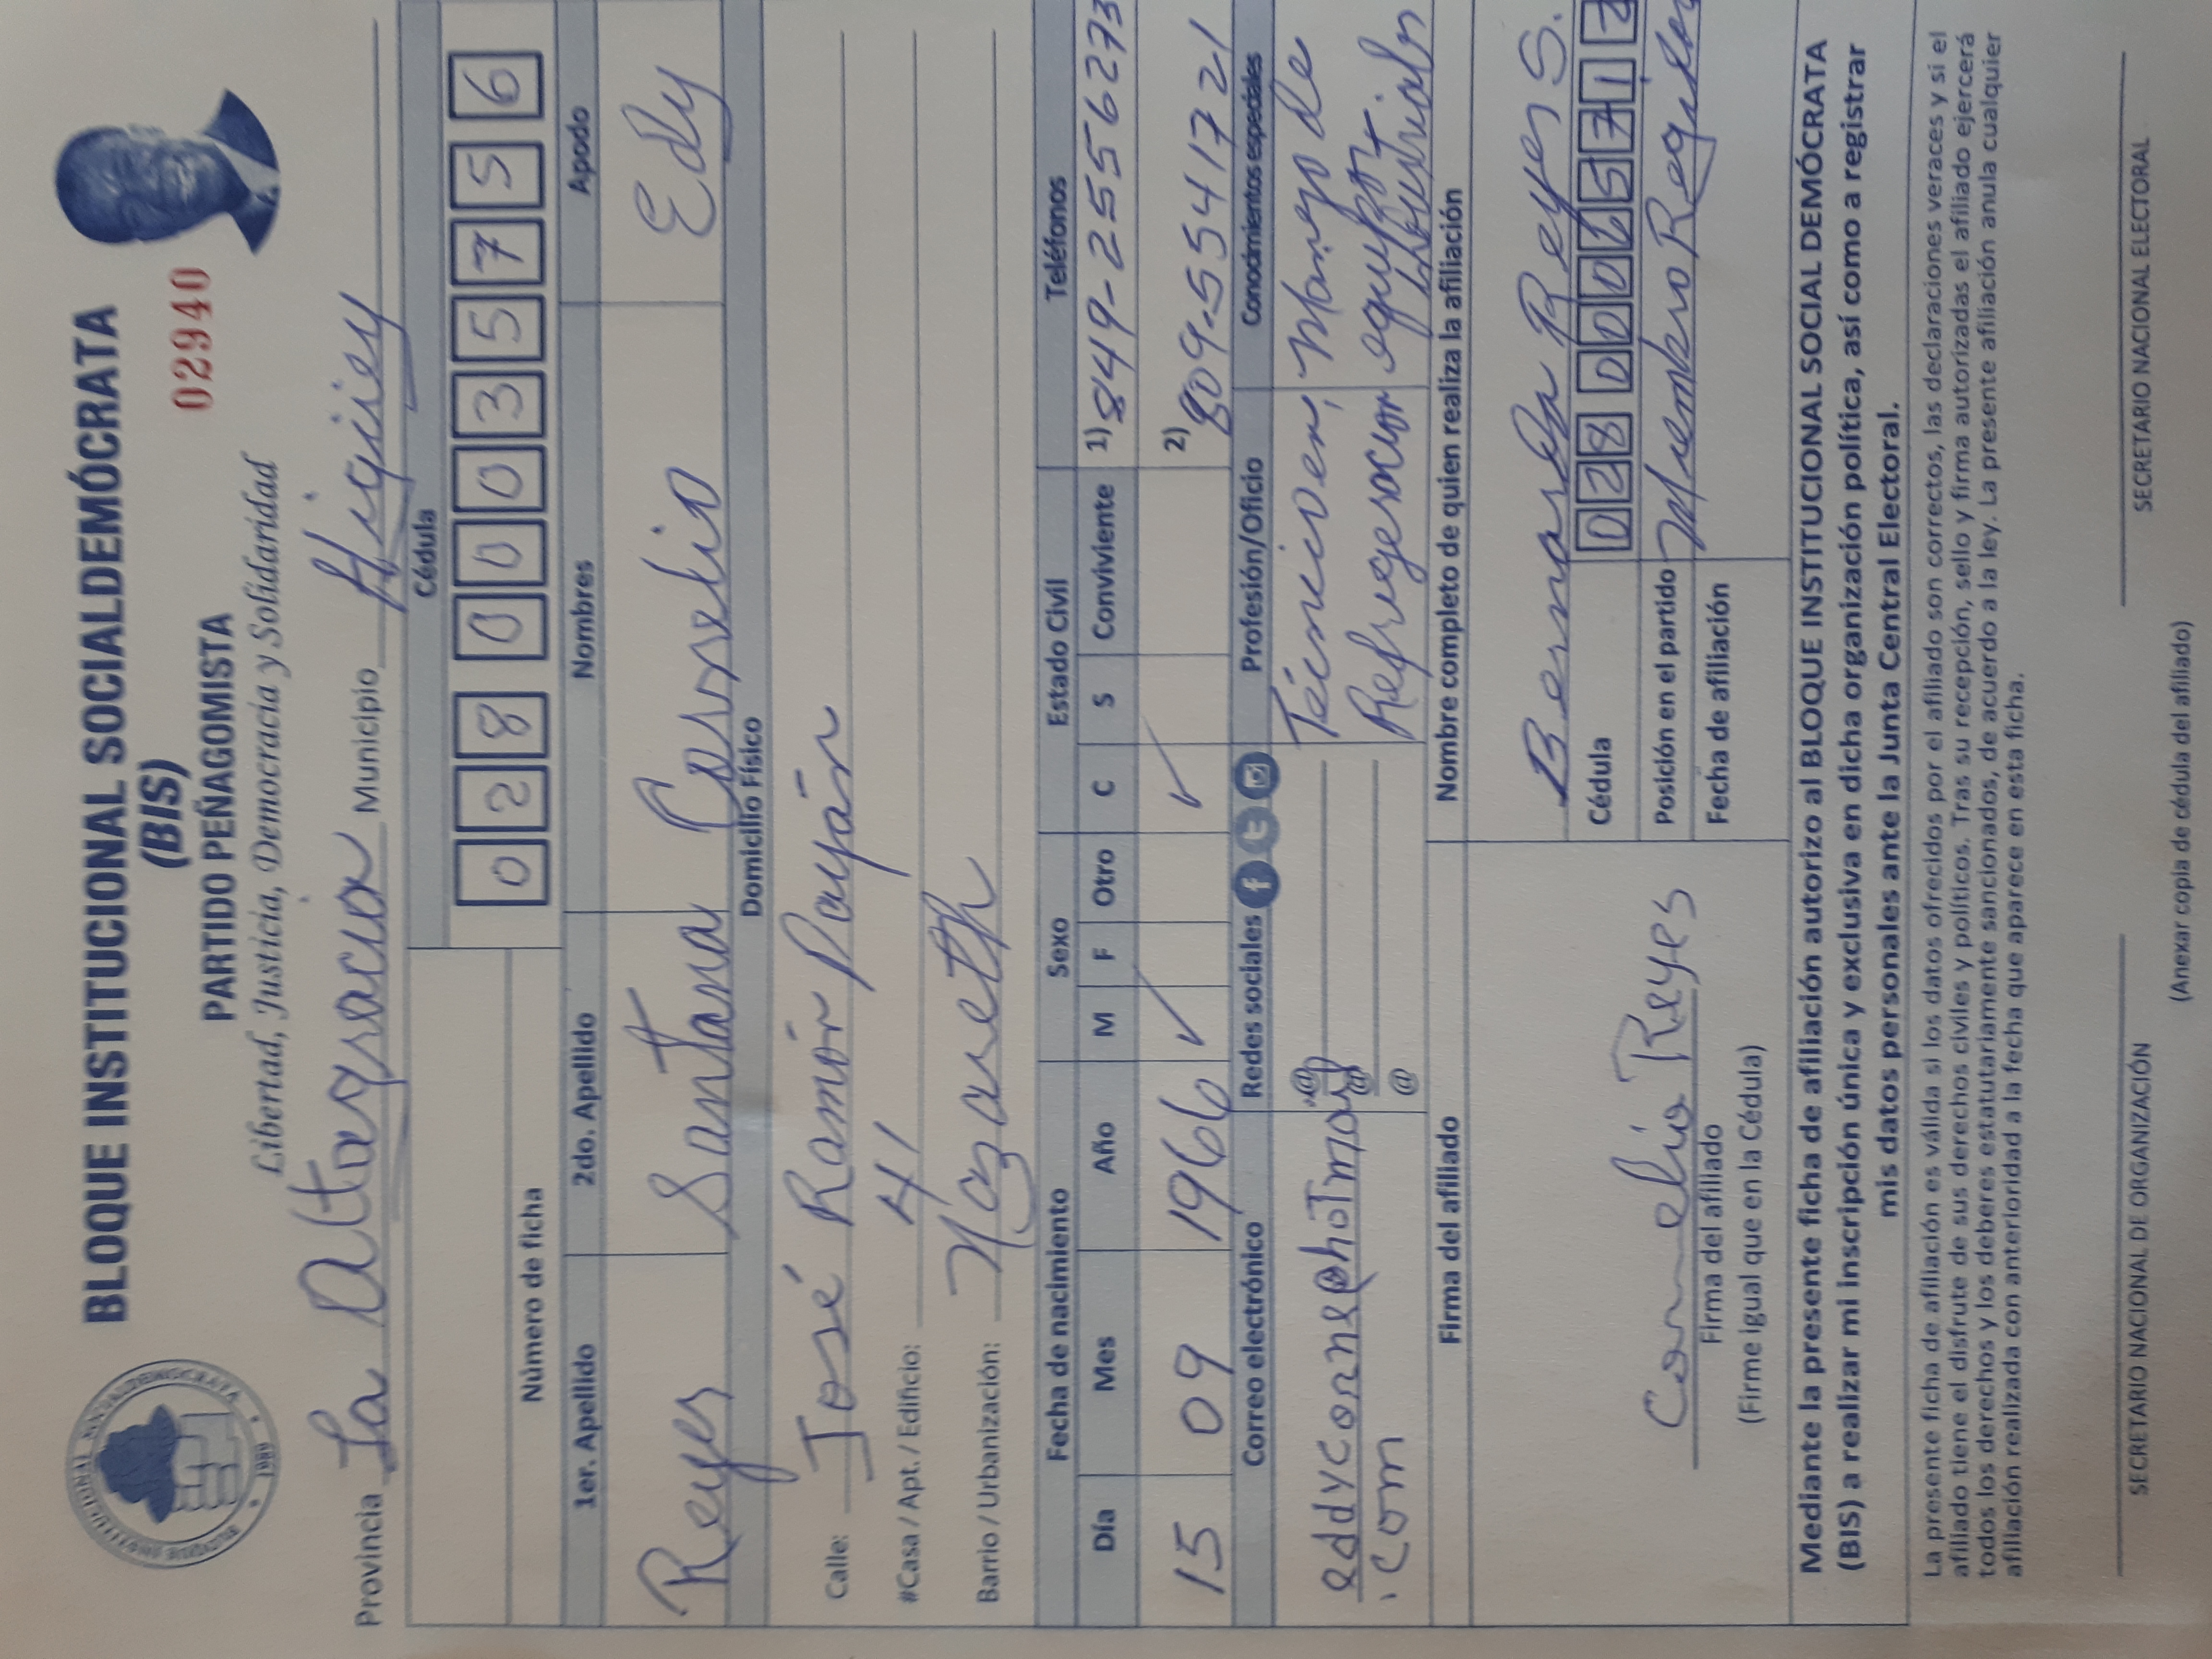 BLOQUE INSTITUCIONAL SOCIALDEMÓCRATA
(BIS)
PARTIDO PEÑAGOMISTA
02940
Libertad, Justicia, Democracia y Solidaridad
BLOQUE INSTITUCIONAL SOCIALDEMOCRATA
1989
Provincia La Altagracia Municipio Higüey
Cédula
028 0003575 6
Número de ficha
1er. Apellido 2do. Apellido Nombres Apodo
Reyes Santana Cornelio Edy
Domicilio Físico
Calle: José Ramón Payán
#Casa / Apt. / Edificio: 41
Barrio / Urbanización: Nazareth
Fecha de nacimiento Sexo Estado Civil Teléfonos
Día Mes Año M F Otro C S Conviviente 1) 849-2556273
15 09 1966 ✓ ✓ 2) 809-5541721
Correo electrónico Redes sociales Profesión/Oficio Conocimientos especiales
eddycorne@hotmail @ Técnico en, Manejo de
.com @ Refrigeracion
@ Industrial
Firma del afiliado Nombre completo de quien realiza la afiliación
Bernarda Reyes S.
Cornelio Reyes
Firma del afiliado
(Firme igual que en la Cédula)
Cédula 028 0006571
Posición en el partido Miembro
Fecha de afiliación
Mediante la presente ficha de afiliación autorizo al BLOQUE INSTITUCIONAL SOCIAL DEMÓCRATA
(BIS) a realizar mi inscripción única y exclusiva en dicha organización política, así como a registrar
mis datos personales ante la Junta Central Electoral.
La presente ficha de afiliación es válida si los datos ofrecidos por el afiliado son correctos, las declaraciones veraces y si el
afiliado tiene el disfrute de sus derechos civiles y políticos. Tras su recepción, sello y firma autorizadas el afiliado ejercerá
todos los derechos y los deberes estatutariamente sancionados, de acuerdo a la ley. La presente afiliación anula cualquier
afiliación realizada con anterioridad a la fecha que aparece en esta ficha.
SECRETARIO NACIONAL DE ORGANIZACIÓN SECRETARIO NACIONAL ELECTORAL
(Anexar copia de cédula del afiliado)